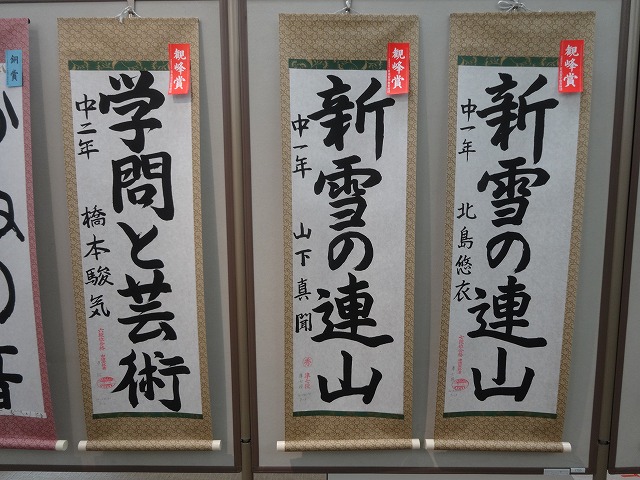 観峰賞
新雪の連山
中一年
北島悠衣
観峰賞
新雪の連山
中一年
山下真聞
観峰賞
学問と芸術
中二年
橋本駿気
銅賞